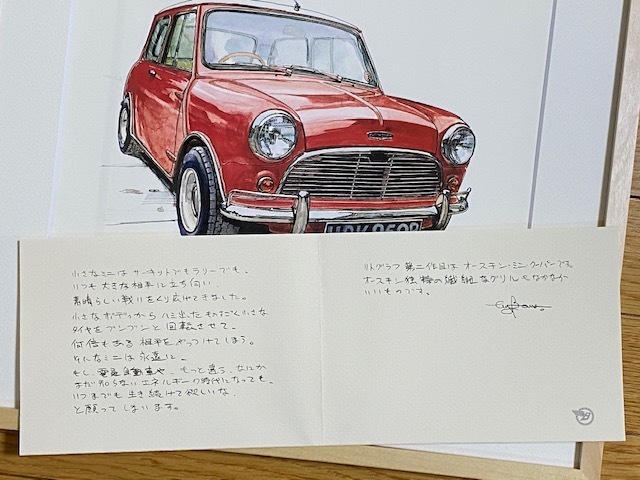 小さなミニは サーキットでもラリーでも、
いつも 大きな相手に立ち向い
素晴らしい戦いをくり広げてきました。
小さなボディから ハミ出た ものすごく小さな
タイヤをブンブンと 回転させて。
何倍もある 相手をやっつけてしまう。
そんなミニは 永遠に。
もし、電気自動車や、もっと違う、なにか
まだ知らない エネルギーの時代になっても。
いつまでも 生き続けて欲しいな、
と願ってしまいます。
リトグラフ 第二作目は オースチン・ミニ・クーパーです。
オースチン独特の繊細なグリルもなかなか
いいものです。